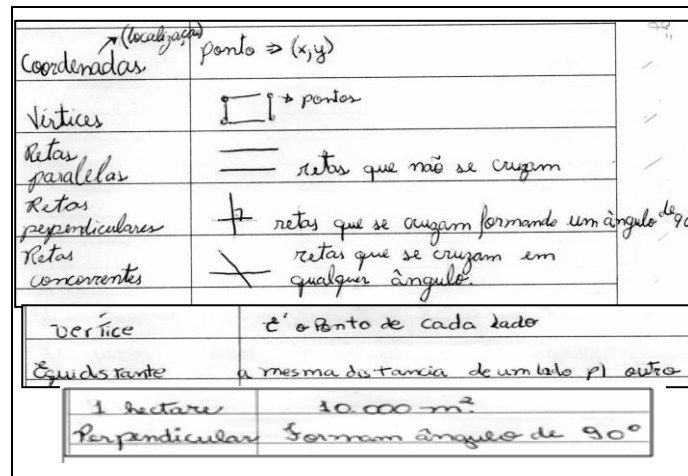 (localização)
Coordenadas ponto ⇒ (x,y)
Vértices → pontos
Retas
paralelas retas que não se cruzam
Retas
perpendiculares retas que se cruzam formando um ângulo de 90
Retas
concorrentes retas que se cruzam em
qualquer ângulo.
vertice é o Ponto de cada lado
Equidistante a mesma distancia de um lado p/ outro
1 hectare 10.000 m²
Perpendicular Formam ângulo de 90°